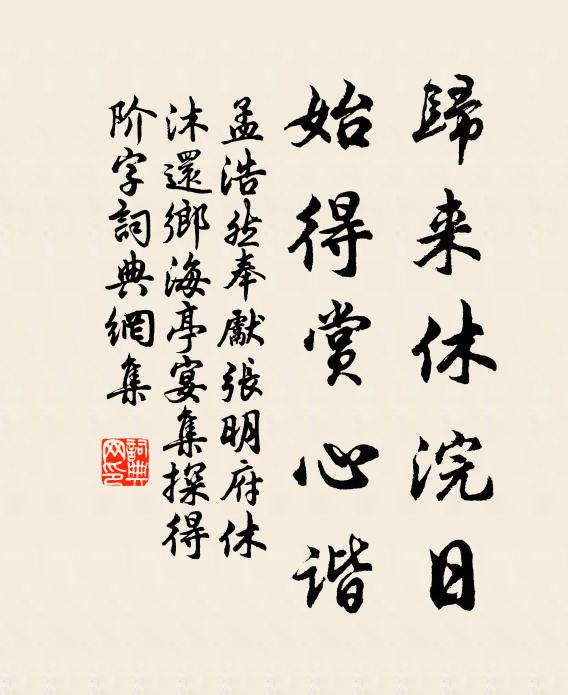 歸来休浣日
始得賞心谐
孟浩然奉獻張明府休
沐還鄉海亭宴集探得
阶字詞典網集
詞典
网印